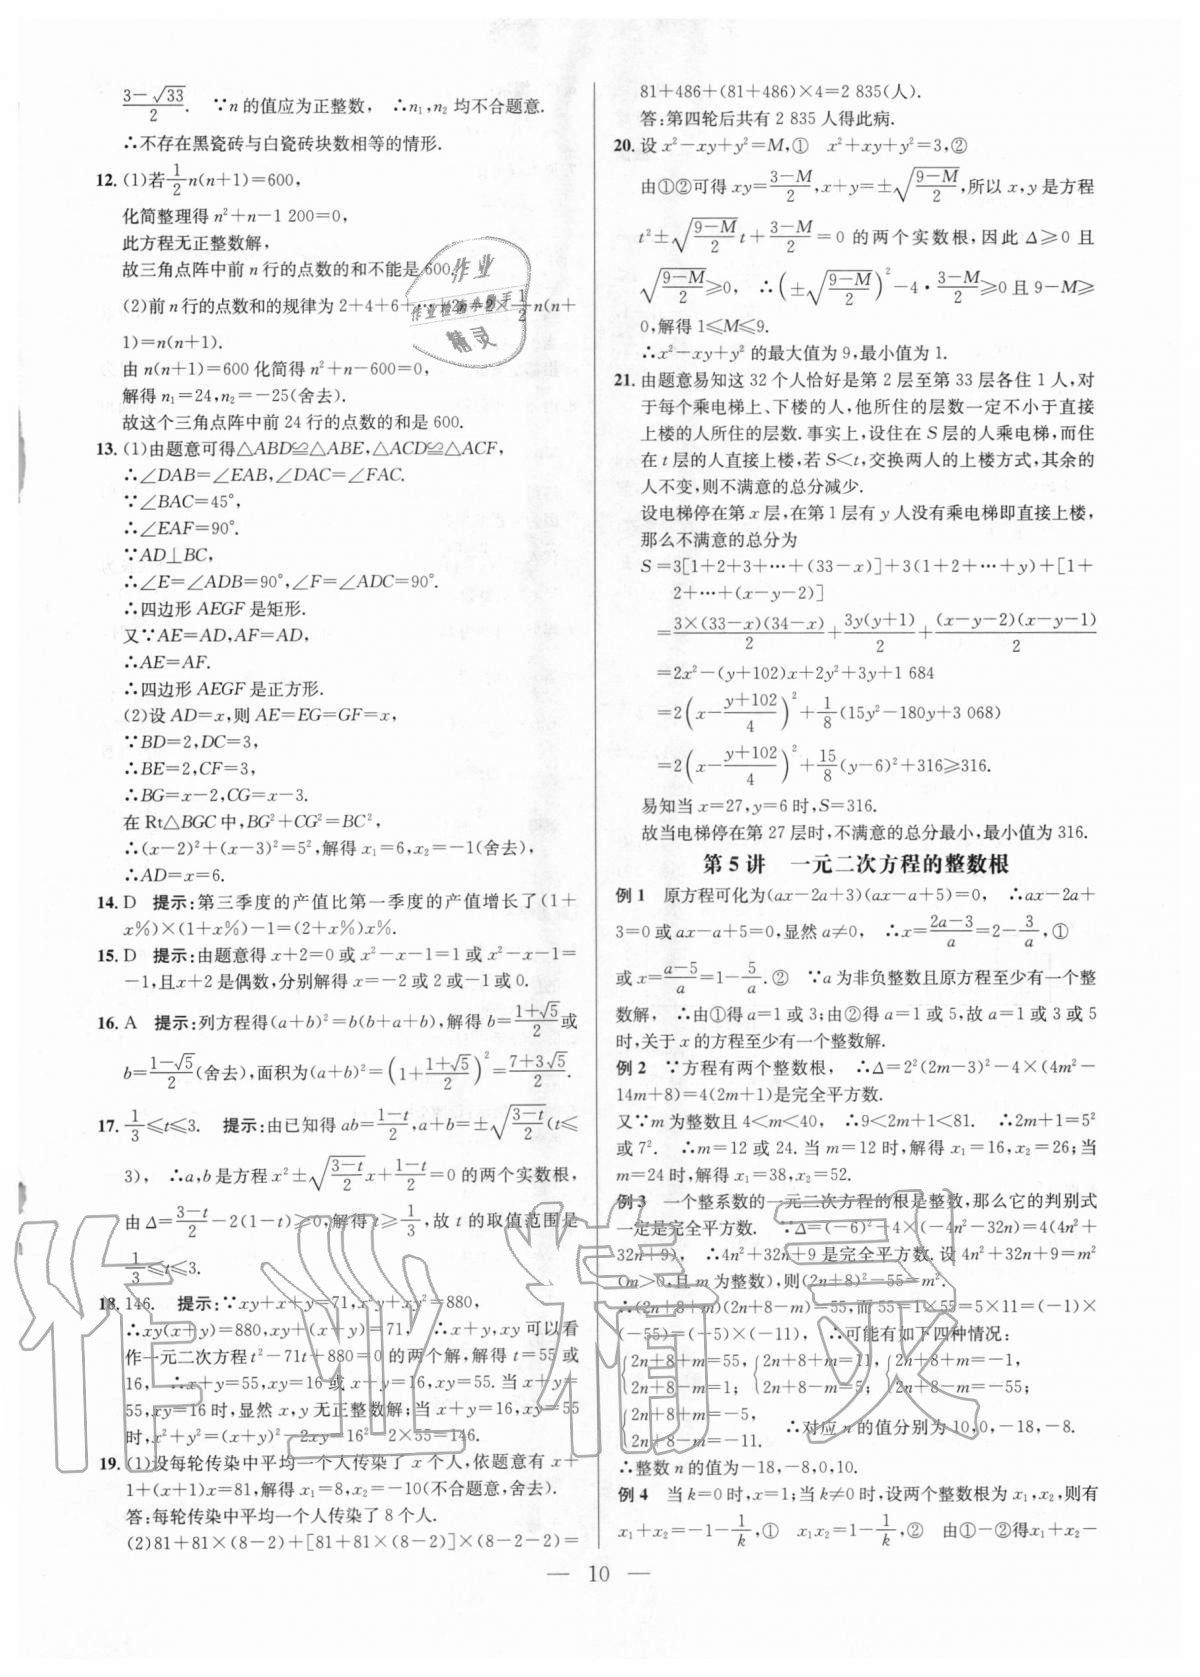 (3−√33)/2. ∵n的值应为正整数, ∴n₁,n₂均不合题意.
∴不存在黑瓷砖与白瓷砖块数相等的情形.
12. (1)若1/2 n(n+1)=600,
化简整理得 n²+n−1 200=0,
此方程无正整数解,
故三角点阵中前 n 行的点数的和不能是 600.
(2)前 n 行的点数和的规律为 2+4+6+…+2n=2×1/2 n(n+
1)=n(n+1).
由 n(n+1)=600 化简得 n²+n−600=0,
解得 n₁=24,n₂=−25(舍去).
故这个三角点阵中前 24 行的点数的和是 600.
13. (1)由题意可得△ABD≌△ABE,△ACD≌△ACF,
∴∠DAB=∠EAB,∠DAC=∠FAC.
∵∠BAC=45°,
∴∠EAF=90°.
∵AD⊥BC,
∴∠E=∠ADB=90°,∠F=∠ADC=90°.
∴四边形 AEGF 是矩形.
又∵AE=AD,AF=AD,
∴AE=AF.
∴四边形 AEGF 是正方形.
(2)设 AD=x,则 AE=EG=GF=x,
∵BD=2,DC=3,
∴BE=2,CF=3,
∴BG=x−2,CG=x−3.
在 Rt△BGC 中,BG²+CG²=BC²,
∴(x−2)²+(x−3)²=5²,解得 x₁=6,x₂=−1(舍去).
∴AD=x=6.
14. D 提示:第三季度的产值比第一季度的产值增长了(1+
x%)×(1+x%)−1=(2+x%)x%.
15. D 提示:由题意得 x+2=0 或 x²−x−1=1 或 x²−x−1=
−1,且 x+2 是偶数,分别解得 x=−2 或 2 或−1 或 0.
16. A 提示:列方程得(a+b)²=b(b+a+b),解得 b=(1+√5)/2 或
b=(1−√5)/2(舍去),面积为(a+b)²=(1+(1+√5)/2)²=(7+3√5)/2.
17. 1/3≤t≤3. 提示:由已知得 ab=(1−t)/2,a+b=±√((3−t)/2)(t≤
3), ∴a,b 是方程 x²±√((3−t)/2)x+(1−t)/2=0 的两个实数根,
由 Δ=(3−t)/2−2(1−t)≥0,解得 t≥1/3,故 t 的取值范围是
1/3≤t≤3.
18. 146. 提示:∵xy+x+y=71,x²y+xy²=880,
∴xy(x+y)=880,xy+(x+y)=71, ∴x+y,xy 可以看
作一元二次方程 t²−71t+880=0 的两个解,解得 t=55 或
16, ∴x+y=55,xy=16 或 x+y=16,xy=55. 当 x+y=
55,xy=16 时,显然 x,y 无正整数解;当 x+y=16,xy=55
时,x²+y²=(x+y)²−2xy=16²−2×55=146.
19. (1)设每轮传染中平均一个人传染了 x 个人,依题意有 x+
1+(x+1)x=81,解得 x₁=8,x₂=−10(不合题意,舍去).
答:每轮传染中平均一个人传染了 8 个人.
(2)81+81×(8−2)+[81+81×(8−2)]×(8−2−2)=
81+486+(81+486)×4=2 835(人).
答:第四轮后共有 2 835 人得此病.
20. 设 x²−xy+y²=M,① x²+xy+y²=3,②
由①②可得 xy=(3−M)/2,x+y=±√((9−M)/2),所以 x,y 是方程
t²±√((9−M)/2)t+(3−M)/2=0 的两个实数根,因此 Δ≥0 且
√((9−M)/2)≥0, ∴(±√((9−M)/2))²−4·(3−M)/2≥0 且 9−M≥
0,解得 1≤M≤9.
∴x²−xy+y² 的最大值为 9,最小值为 1.
21. 由题意易知这 32 个人恰好是第 2 层至第 33 层各住 1 人,对
于每个乘电梯上、下楼的人,他所住的层数一定不小于直接
上楼的人所住的层数. 事实上,设住在 S 层的人乘电梯,而住
在 t 层的人直接上楼,若 S<t,交换两人的上楼方式,其余的
人不变,则不满意的总分减少.
设电梯停在第 x 层,在第 1 层有 y 人没有乘电梯即直接上楼,
那么不满意的总分为
S=3[1+2+3+…+(33−x)]+3(1+2+…+y)+[1+
2+…+(x−y−2)]
=3×(33−x)(34−x)/2+3y(y+1)/2+(x−y−2)(x−y−1)/2
=2x²−(y+102)x+2y²+3y+1 684
=2(x−(y+102)/4)²+1/8(15y²−180y+3 068)
=2(x−(y+102)/4)²+15/8(y−6)²+316≥316.
易知当 x=27,y=6 时,S=316.
故当电梯停在第 27 层时,不满意的总分最小,最小值为 316.
第 5 讲 一元二次方程的整数根
例 1 原方程可化为(ax−2a+3)(ax−a+5)=0, ∴ax−2a+
3=0 或 ax−a+5=0,显然 a≠0, ∴x=(2a−3)/a=2−3/a,①
或 x=(a−5)/a=1−5/a.② ∵a 为非负整数且原方程至少有一个整
数解, ∴由①得 a=1 或 3;由②得 a=1 或 5,故 a=1 或 3 或 5
时,关于 x 的方程至少有一个整数解.
例 2 ∵方程有两个整数根, ∴Δ=2²(2m−3)²−4×(4m²−
14m+8)=4(2m+1)是完全平方数.
又∵m 为整数且 4<m<40, ∴9<2m+1<81. ∴2m+1=5²
或 7². ∴m=12 或 24. 当 m=12 时,解得 x₁=16,x₂=26;当
m=24 时,解得 x₁=38,x₂=52.
例 3 一个整系数的一元二次方程的根是整数,那么它的判别式
一定是完全平方数. ∵Δ=(−6)²−4×(−4n²−32n)=4(4n²+
32n+9), ∴4n²+32n+9 是完全平方数. 设 4n²+32n+9=m²
(m>0,且 m 为整数),则(2n+8)²−55=m².
∴(2n+8+m)(2n+8−m)=55,而 55=1×55=5×11=(−1)×
(−55)=(−5)×(−11), ∴可能有如下四种情况:
{2n+8+m=55, {2n+8+m=11, {2n+8+m=−1,
{2n+8−m=1, {2n+8−m=5, {2n+8−m=−55;
{2n+8+m=−5,
{2n+8−m=−11. ∴对应 n 的值分别为 10,0,−18,−8.
∴整数 n 的值为−18,−8,0,10.
例 4 当 k=0 时,x=1;当 k≠0 时,设两个整数根为 x₁,x₂,则有
x₁+x₂=−1−1/k,① x₁x₂=1−1/k,② 由①−②得 x₁+x₂−
— 10 —
作业
作业检查小帮手
精灵
作业精灵